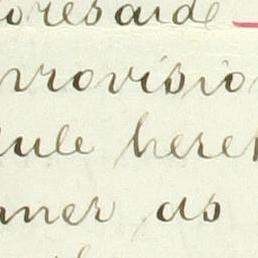 foresaide
provisio
ule heret
ner as